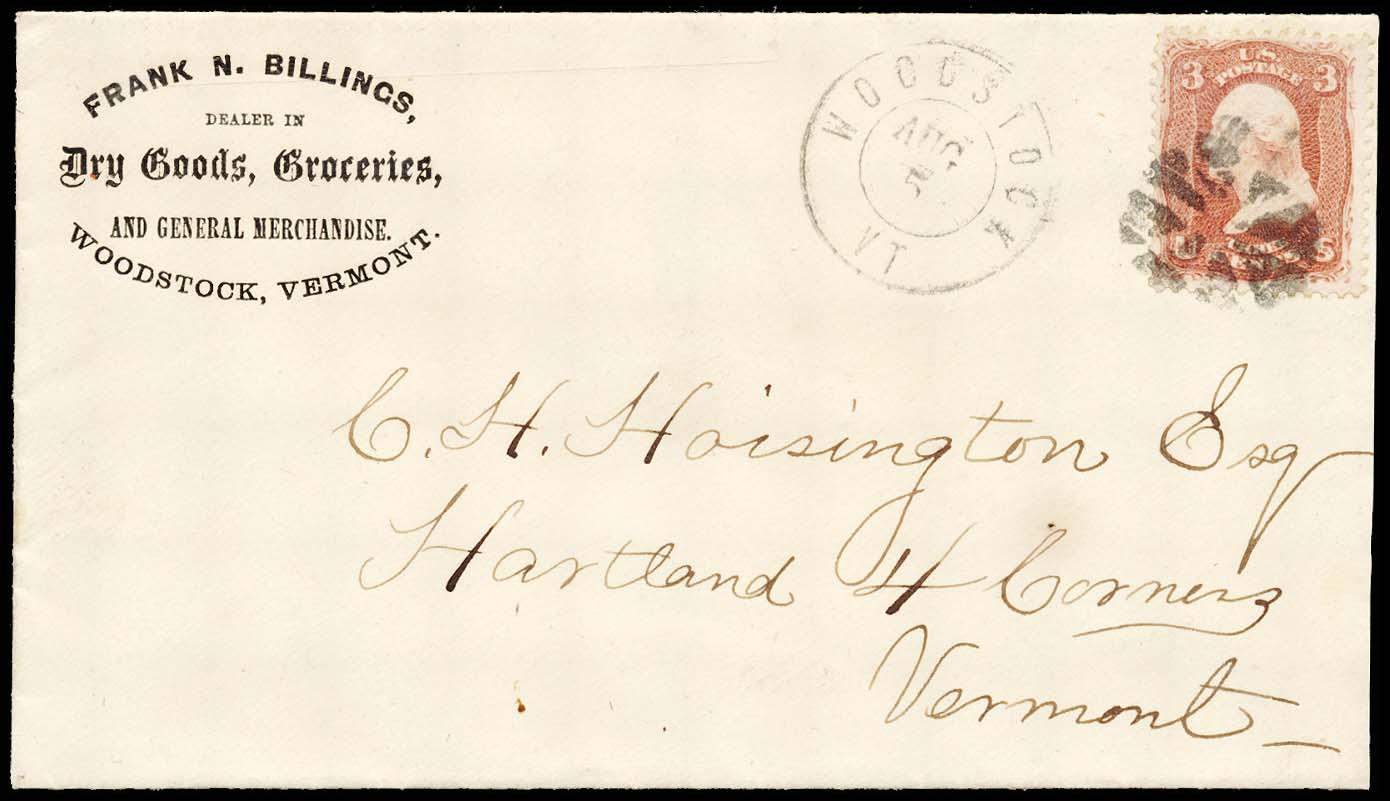 FRANK N. BILLINGS,
DEALER IN
Dry Goods, Groceries,
AND GENERAL MERCHANDISE.
WOODSTOCK, VERMONT.
WOODSTOCK
AUG
5
VT
3 U.S. 3
POSTAGE
U S
CENTS
C. H. Hoisington Esq
Hartland 4 Corners
Vermont